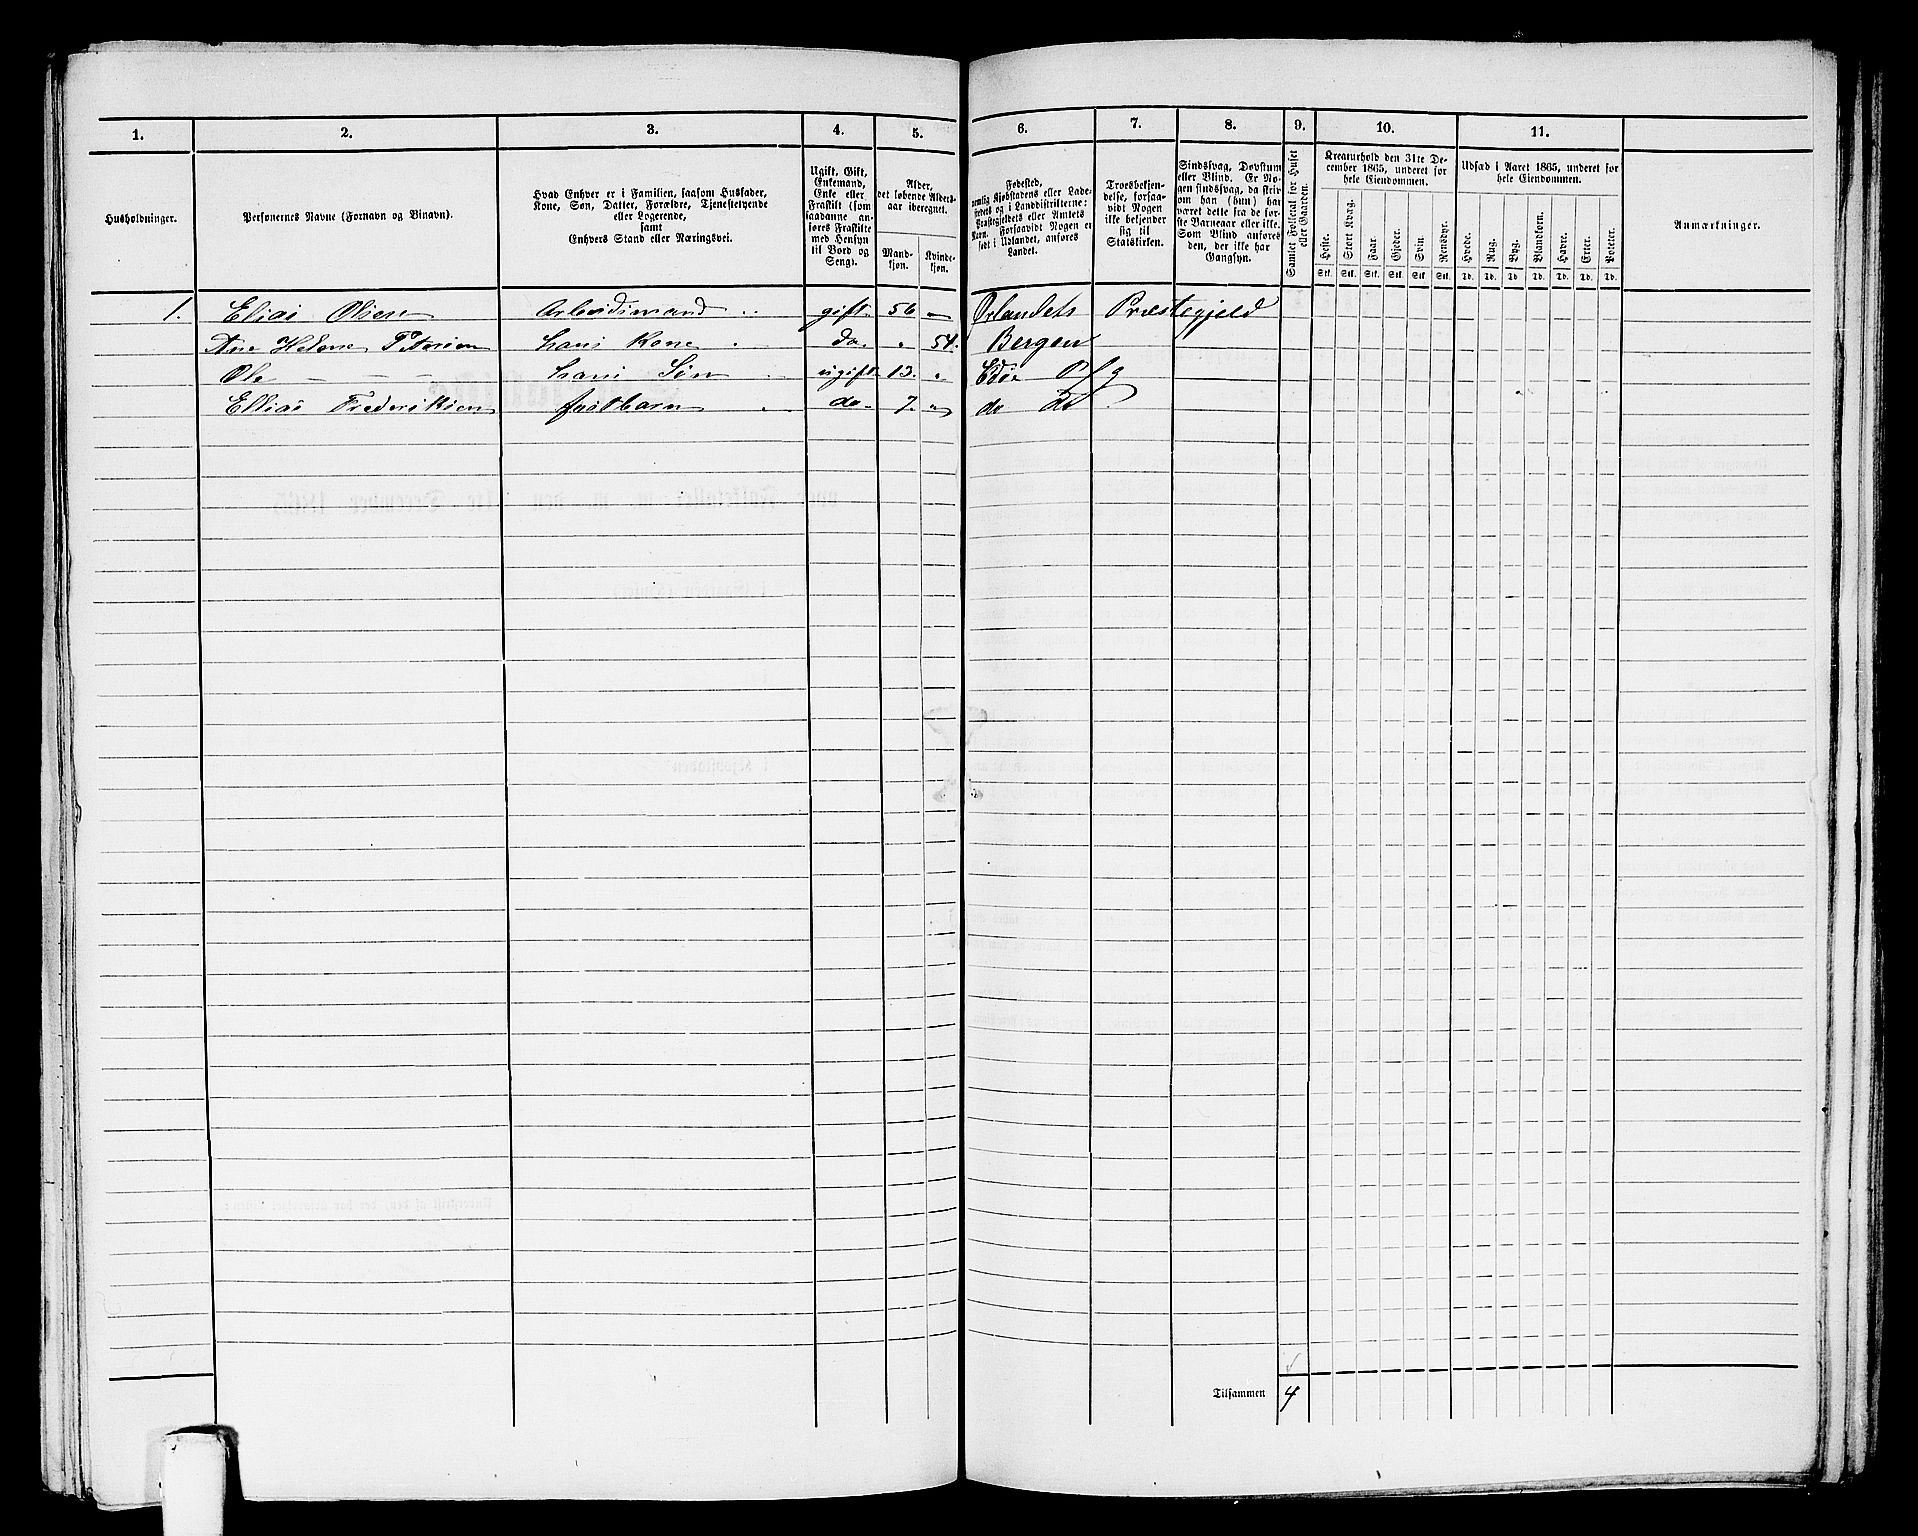 1. 2. 3. 4. 5. 6. 7. 8. 9. 10. 11.
Husholdninger.
Personernes Navne (Fornavn og Binavn).
Hvad Enhver er i Familien, saasom Husfader,
Kone, Søn, Datter, Forældre, Tjenestetyende
eller Logerende,
samt
Enhvers Stand eller Næringsvei.
Ugift, Gift,
Enkemand,
Enke eller
Fraskilt (som
saadanne an-
føres Fraskilte
med Hensyn
til Bord og
Seng).
Alder,
det løbende Alders-
aar iberegnet.
Mand-
kjøn.
Kvinde-
kjøn.
Fødested,
nemlig Kjøbstadens eller Lade-
stedets og i Landdistrikterne:
Præstegjeldets eller Amtets
Navn. Forsaavidt Nogen er
født i Udlandet, anføres
Landet.
Troesbekjen-
delse, forsaa-
vidt Nogen
ikke bekjender
sig til
Statskirken.
Sindssvag, Døvstum
eller Blind. Er No-
gen sindssvag, da skri-
ves om han (hun) har
været dette fra de før-
ste Barneaar eller ikke.
Som Blind anføres
den, der ikke har
Gangsyn.
Samlet Folketal for Huset
eller Gaarden.
Kreaturhold den 31te De-
cember 1865, underet for
hele Eiendommen.
Heste. Stort Kvæg. Faar. Gjeder. Svin. Rensdyr.
Stk. Stk. Stk. Stk. Stk. Stk.
Udsæd i Aaret 1865, underet for
hele Eiendommen.
Hvede. Rug. Byg. Blandkorn. Havre. Erter. Poteter.
Td. Td. Td. Td. Td. Td. Td.
Anmærkninger.
1. Elias Olsen Arbeidsmand gift 56 " Ørlandets Præstegjeld
Ane Helene Petersen hans Kone do. " 54. Bergen
Ole — — — hans Søn ugift 13. " Edøe Pfg
Ellias Frederiksen fostbarn do. 7. " do Do
Tilsammen 4